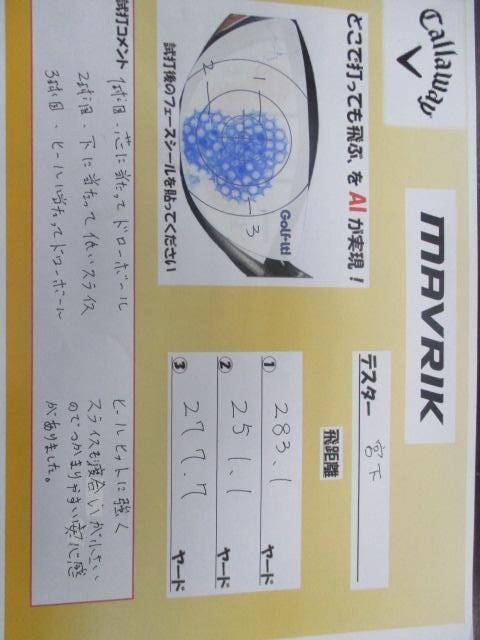 Callaway
MAVRIK
どこで打っても飛ぶ、をAIが実現！
1
2
3
Golf-it!
試打後のフェースシールを貼ってください
テスター 宮下
飛距離
① 283.1 ヤード
② 251.1 ヤード
③ 277.7 ヤード
試打コメント
1球目・芯に当たってドローボール
2球目・下に当たって低いスライス
3球目・ヒールに当たってドローボール
ヒールヒットに強く
スライスも度合いが小さい
のでつかまりやすい安心感
がありました。